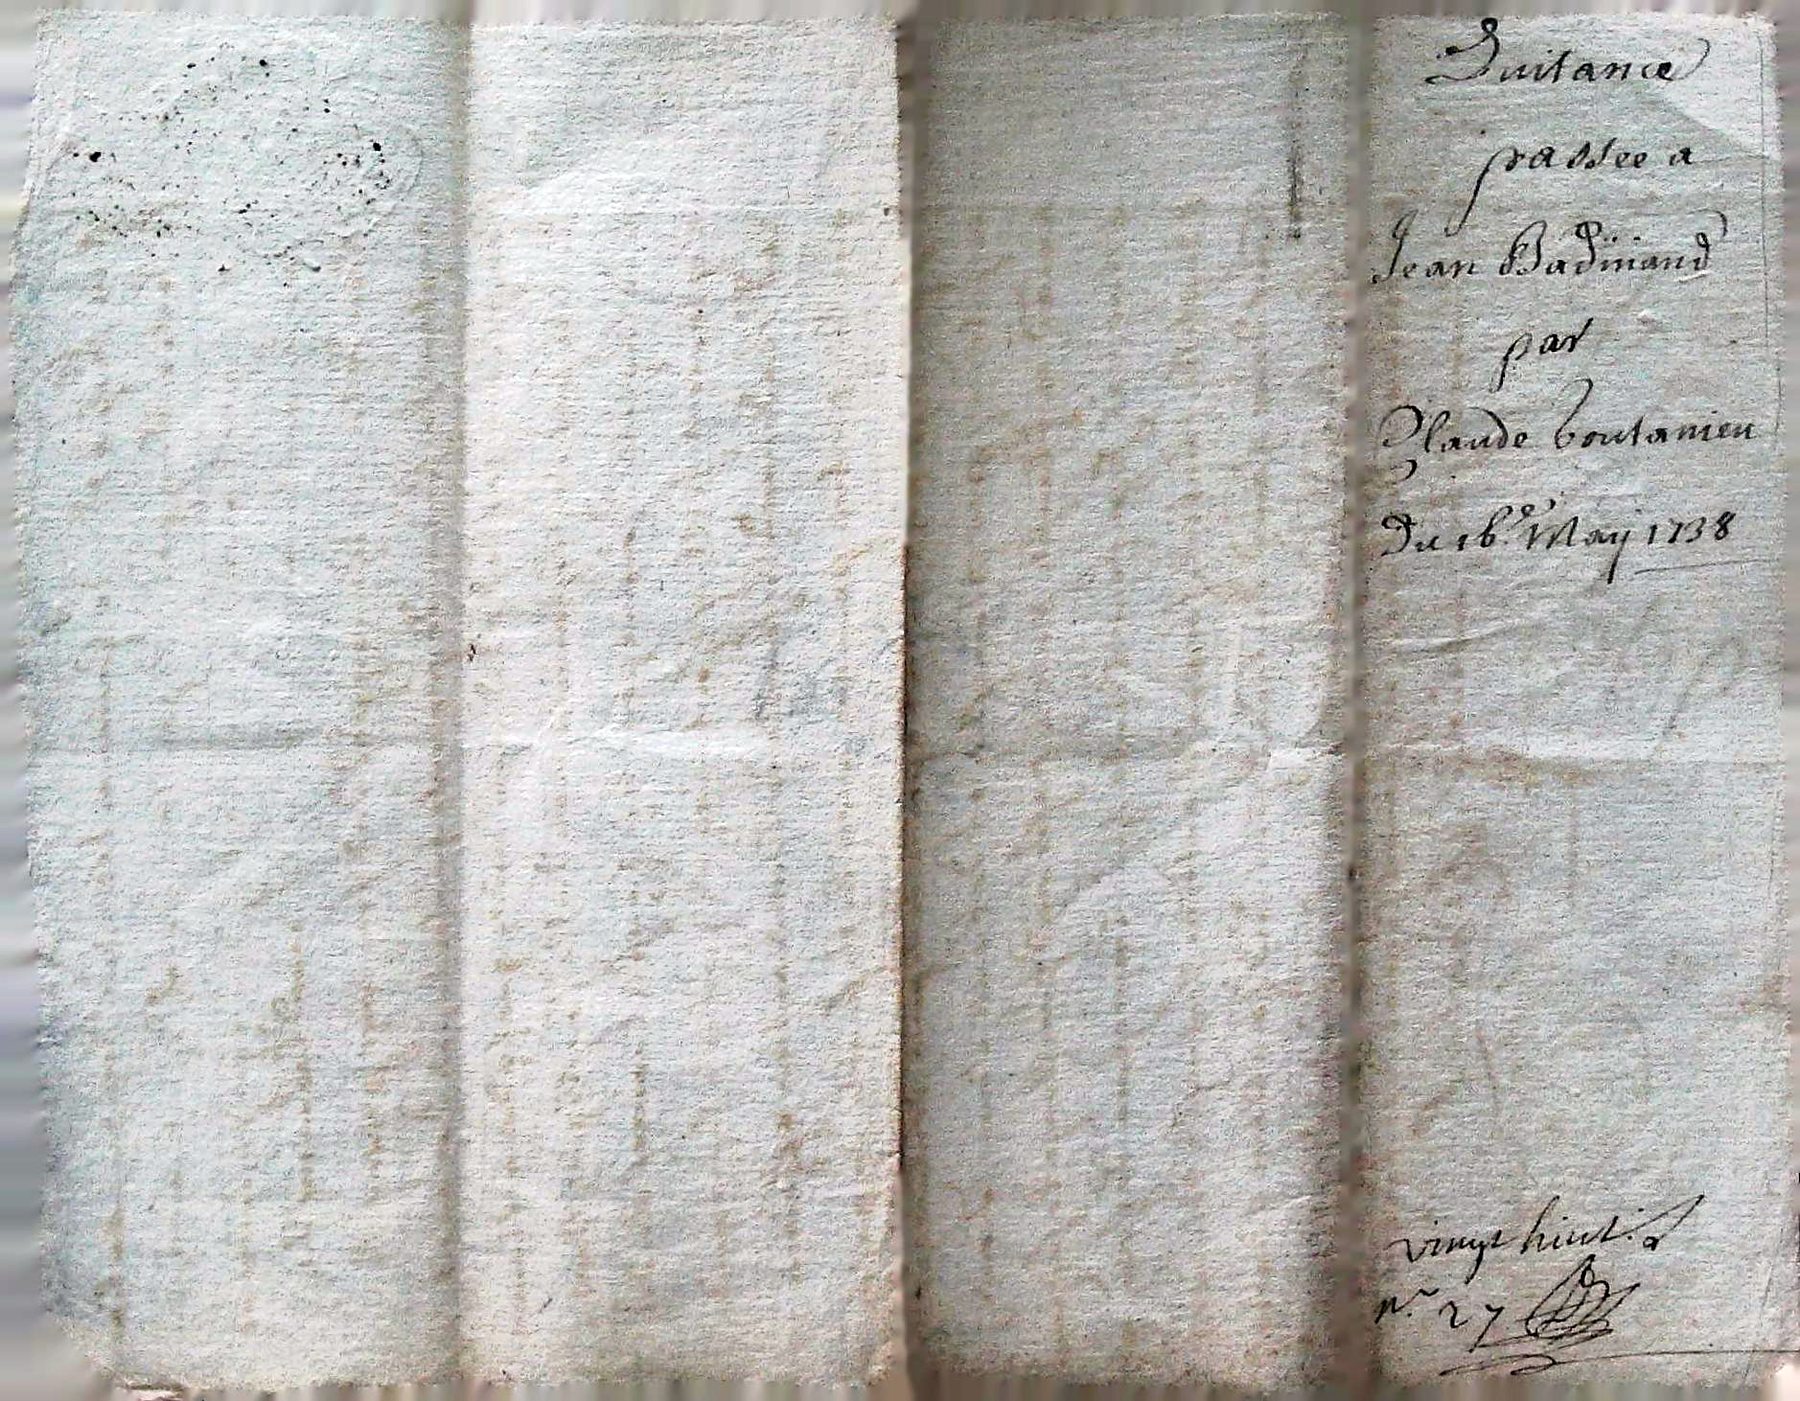 Quitance
passee a
Jean Badinand
par
Claude boutanieu
Du 16.e May 1738
vingt huit.
n.° 27